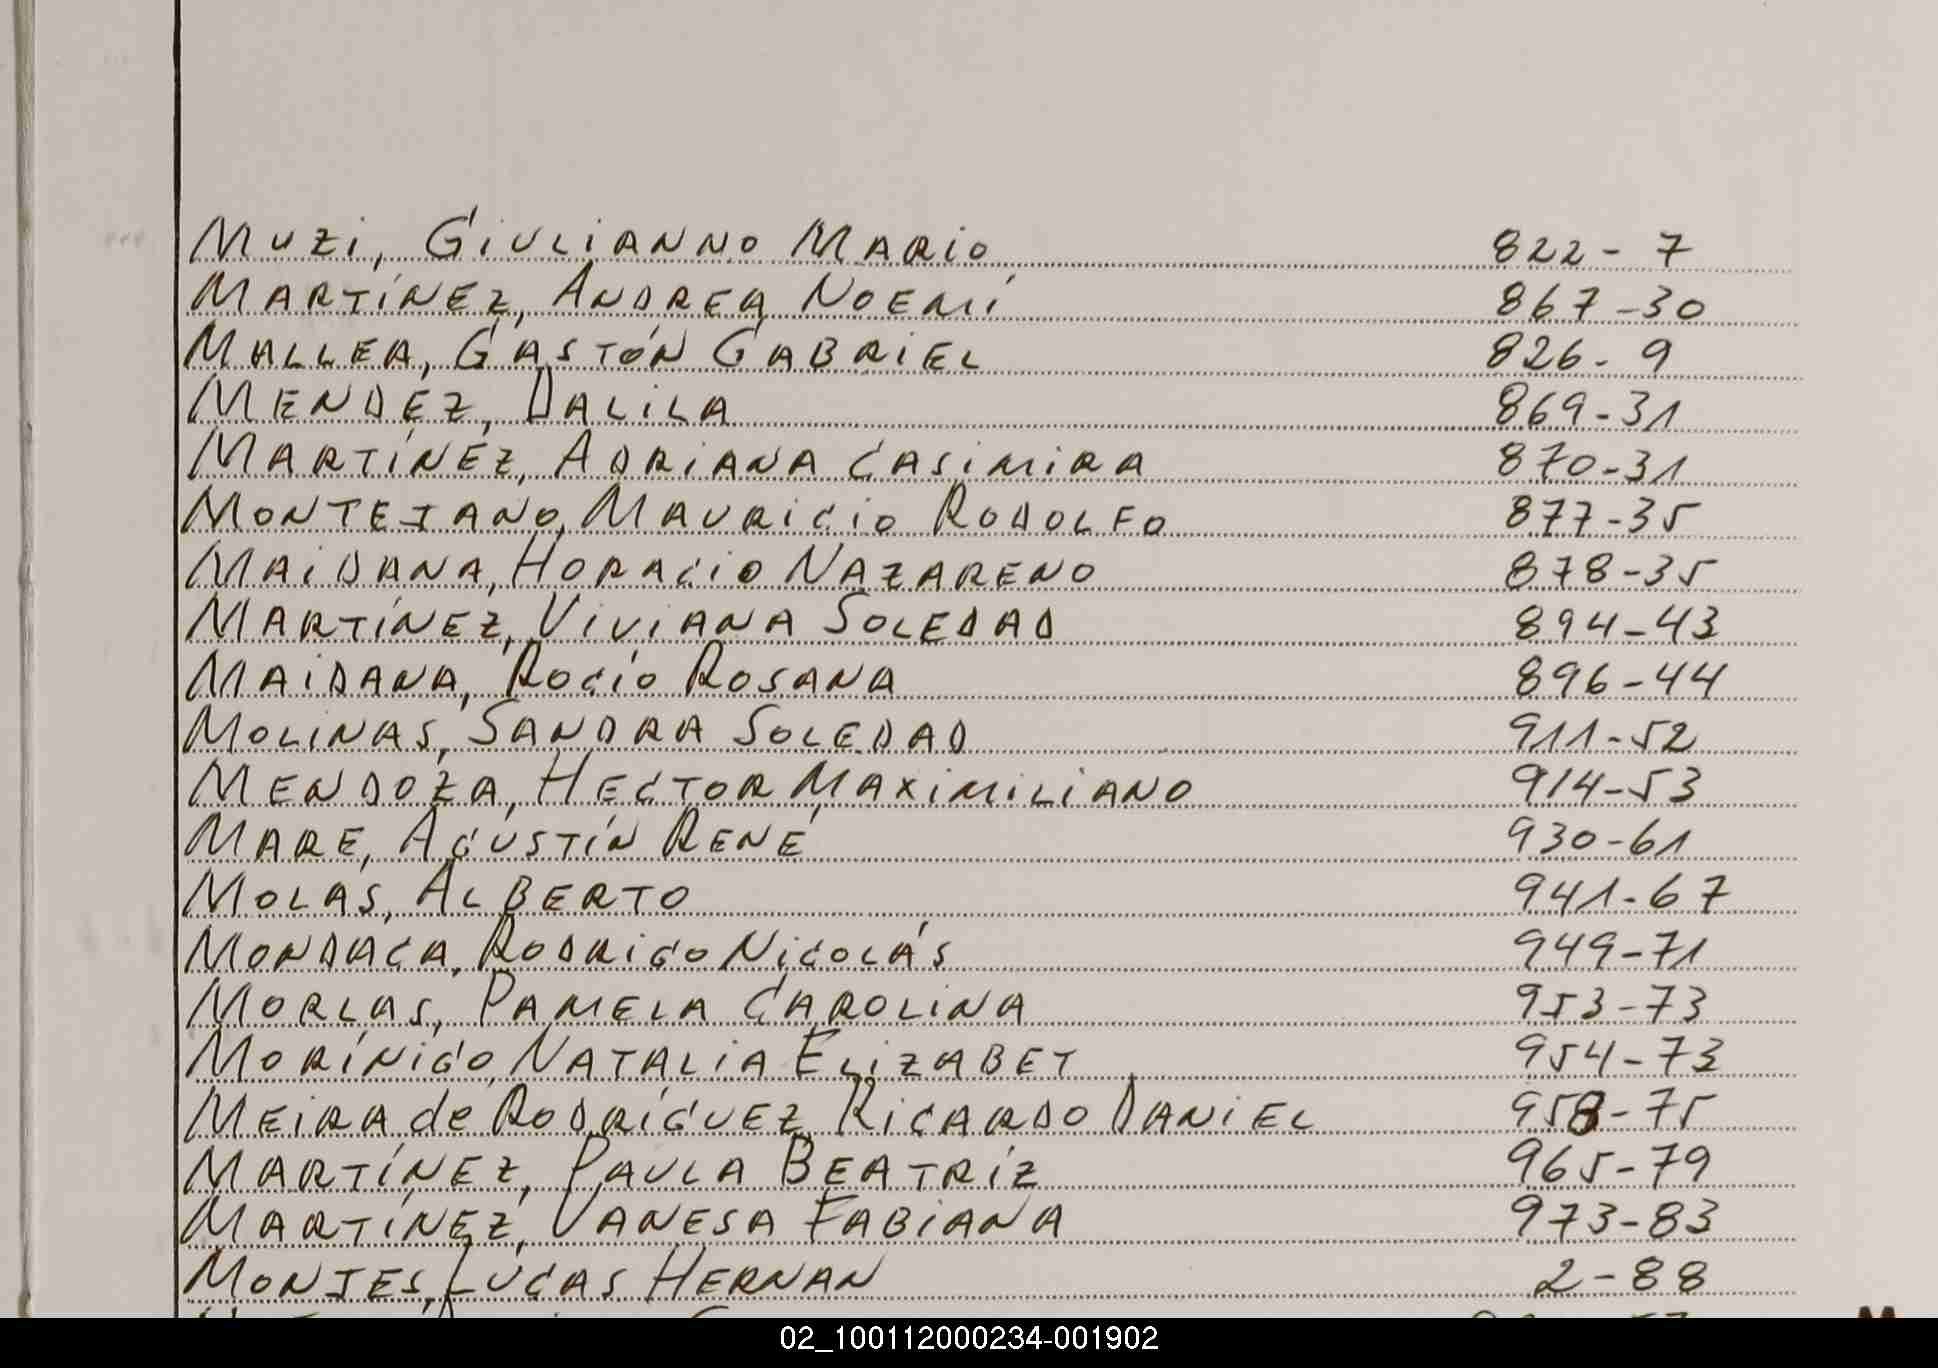 MUZI, GIULIANNO MARIO 822-7
MARTÍNEZ, ANDREA NOEMÍ 867-30
MALLEA, GASTÓN GABRIEL 826-9
MENDEZ, DALILA 869-31
MARTÍNEZ, ADRIANA CASIMIRA 870-31
MONTEJANO, MAURICIO RODOLFO 877-35
MAIDANA, HORACIO NAZARENO 878-35
MARTÍNEZ, VIVIANA SOLEDAD 894-43
MAIDANA, ROCÍO ROSANA 896-44
MOLINAS, SANDRA SOLEDAD 911-52
MENDOZA, HECTOR MAXIMILIANO 914-53
MARE, AGUSTÍN RENÉ 930-61
MOLAS, ALBERTO 941-67
MONDACA, RODRIGO NICOLÁS 949-71
MORLAS, PAMELA CAROLINA 953-73
MORÍNIGO, NATALIA ELIZABET 954-73
MEIRA de RODRÍGUEZ, RICARDO DANIEL 958-75
MARTÍNEZ, PAULA BEATRÍZ 965-79
MARTÍNEZ, VANESA FABIANA 973-83
MONJES, LUCAS HERNAN 2-88
02_100112000234-001902